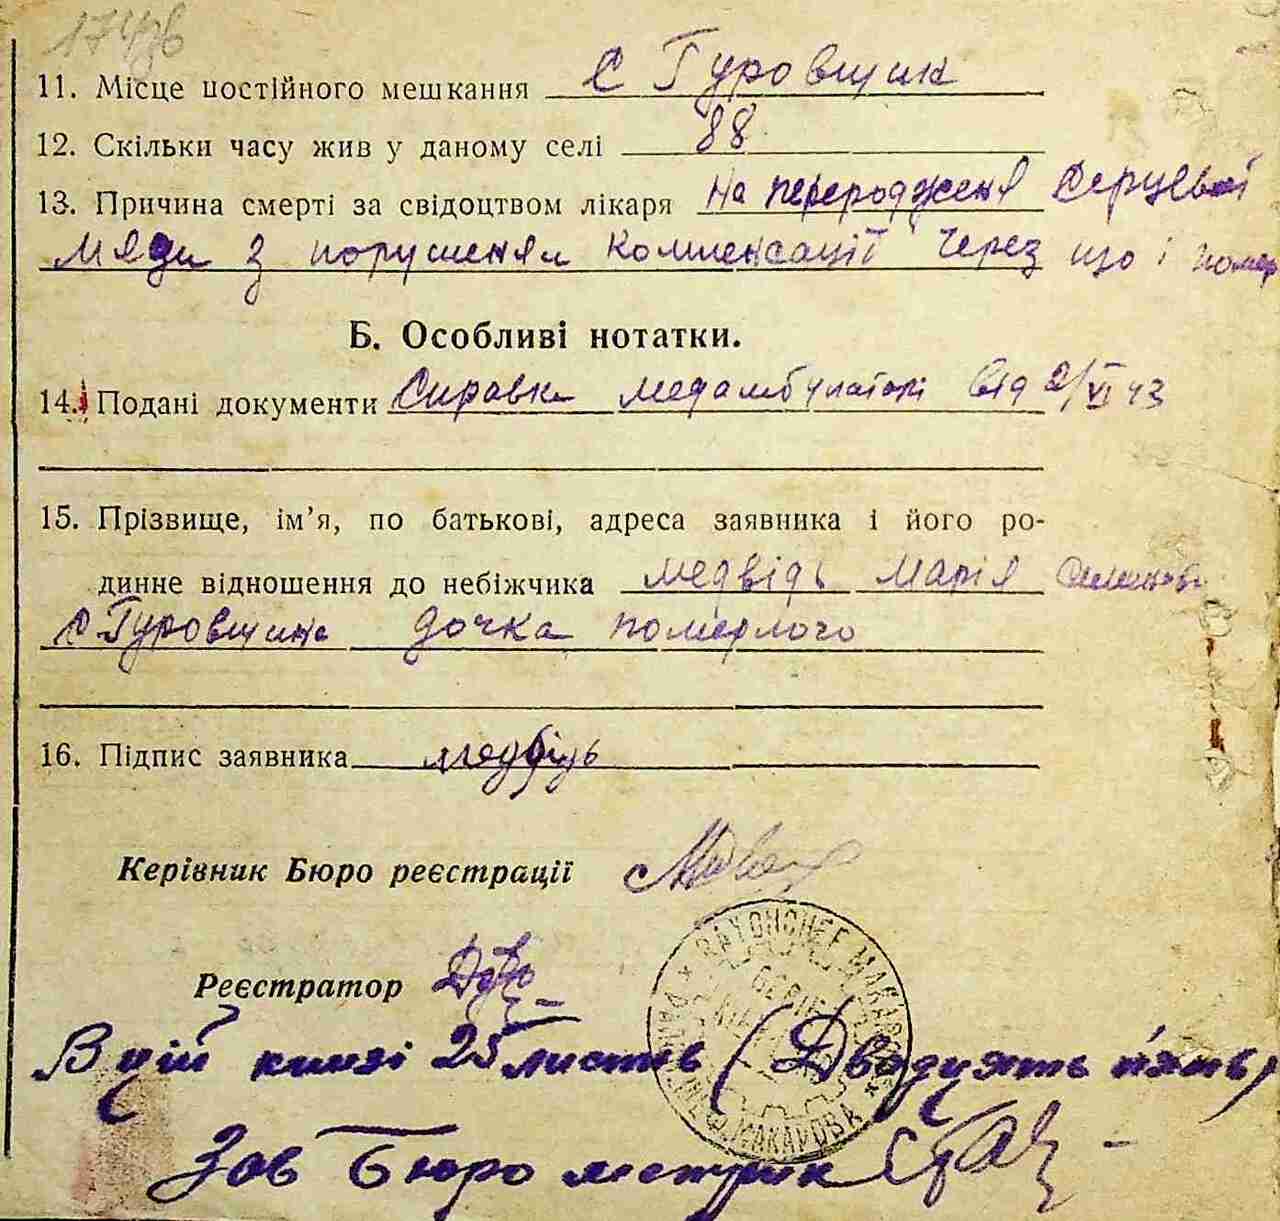 11. Місце постійного мешкання с Гуровщина
12. Скільки часу жив у даному селі 88
13. Причина смерті за свідоцтвом лікаря на переродженя серцевої
мязи з порушеням компенсації через що і помер
Б. Особливі нотатки.
14. Подані документи Справка медамбулаторі від 2/VI 43
15. Прізвище, ім’я, по батькові, адреса заявника і його ро-
динне відношення до небіжчика Медвідь Марія
с. Гуровщина дочка померлого
16. Підпис заявника Медвідь
Керівник Бюро реєстрації
Реєстратор
В цій книзі 25 листів (Двадцять п'ять)
Зав Бюро